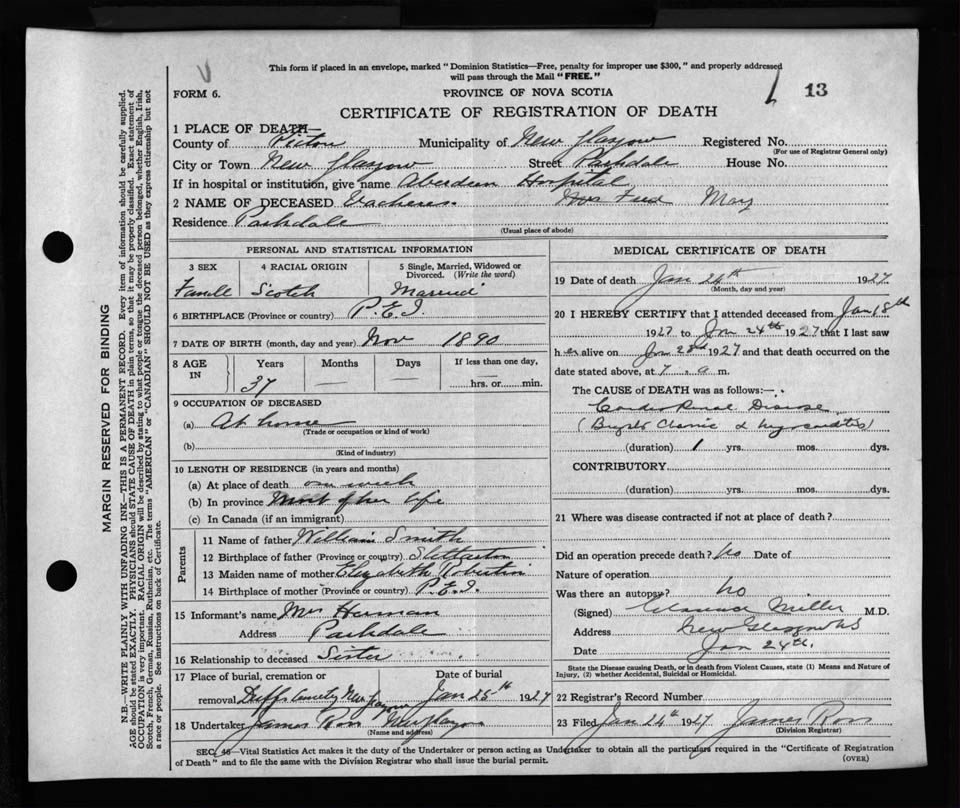 This form if placed in an envelope, marked "Dominion Statistics—Free, penalty for improper use $300," and properly addressed
will pass through the Mail "FREE."
FORM 6.
PROVINCE OF NOVA SCOTIA
13
CERTIFICATE OF REGISTRATION OF DEATH
1 PLACE OF DEATH—
County of Pictou Municipality of New Glasgow Registered No.
(For use of Registrar General only)
City or Town New Glasgow Street Parkdale House No.
If in hospital or institution, give name Aberdeen Hospital
2 NAME OF DECEASED Mrs Fred May
Residence Parkdale
(Usual place of abode)
PERSONAL AND STATISTICAL INFORMATION
3 SEX 4 RACIAL ORIGIN 5 Single, Married, Widowed or
Divorced. (Write the word)
Female Scotch Married
6 BIRTHPLACE (Province or country) P.E.I.
7 DATE OF BIRTH (month, day and year) Nov 1890
8 AGE IN Years Months Days If less than one day,
37 hrs. or min.
9 OCCUPATION OF DECEASED
(a) At home
(Trade or occupation or kind of work)
(b)
(Kind of industry)
10 LENGTH OF RESIDENCE (in years and months)
(a) At place of death one week
(b) In province Most of her life
(c) In Canada (if an immigrant)
Parents
11 Name of father William Smith
12 Birthplace of father (Province or country) Stellarton
13 Maiden name of mother Elizabeth
14 Birthplace of mother (Province or country) P.E.I.
15 Informant's name Mrs Herman
Address Parkdale
16 Relationship to deceased Sister
17 Place of burial, cremation or Date of burial
removal Duffs Jan 25th 1927
18 Undertaker James Ross New Glasgow
(Name and address)
MEDICAL CERTIFICATE OF DEATH
19 Date of death Jan 24th 1927
(Month, day and year)
20 I HEREBY CERTIFY that I attended deceased from Jan 18th
1927 to Jan 24th 1927 that I last saw
her alive on Jan 23rd 1927 and that death occurred on the
date stated above, at 7 a m.
The CAUSE of DEATH was as follows:—
Cardio Renal Disease
(duration) 1 yrs. mos. dys.
CONTRIBUTORY
(duration) yrs. mos. dys.
21 Where was disease contracted if not at place of death?
Did an operation precede death? No Date of
Nature of operation
Was there an autopsy? No
(Signed) Clarence Miller M.D.
Address New Glasgow NS
Date Jan 24th.
State the Disease causing Death, or in death from Violent Causes, state (1) Means and Nature of
Injury, (2) whether Accidental, Suicidal or Homicidal.
22 Registrar's Record Number
23 Filed Jan 24th 1927 James Ross
(Division Registrar)
SEC. 46—Vital Statistics Act makes it the duty of the Undertaker or person acting as Undertaker to obtain all the particulars required in the "Certificate of Registration
of Death" and to file the same with the Division Registrar who shall issue the burial permit.
(OVER)
MARGIN RESERVED FOR BINDING
N.B.—WRITE PLAINLY WITH UNFADING INK—THIS IS A PERMANENT RECORD. Every item of information should be carefully supplied.
AGE should be stated EXACTLY. PHYSICIANS should STATE CAUSE OF DEATH in plain terms, so that it may be properly classified. Exact statement of
OCCUPATION is very important. RACIAL ORIGIN will be described by stating to what people or tongue the deceased person belonged, whether English, Irish,
Scotch, French, German, Russian, Ruthenian, etc. The terms "AMERICAN" or "CANADIAN" SHOULD NOT BE USED as they express citizenship but not
a race or people. See instructions on back of Certificate.